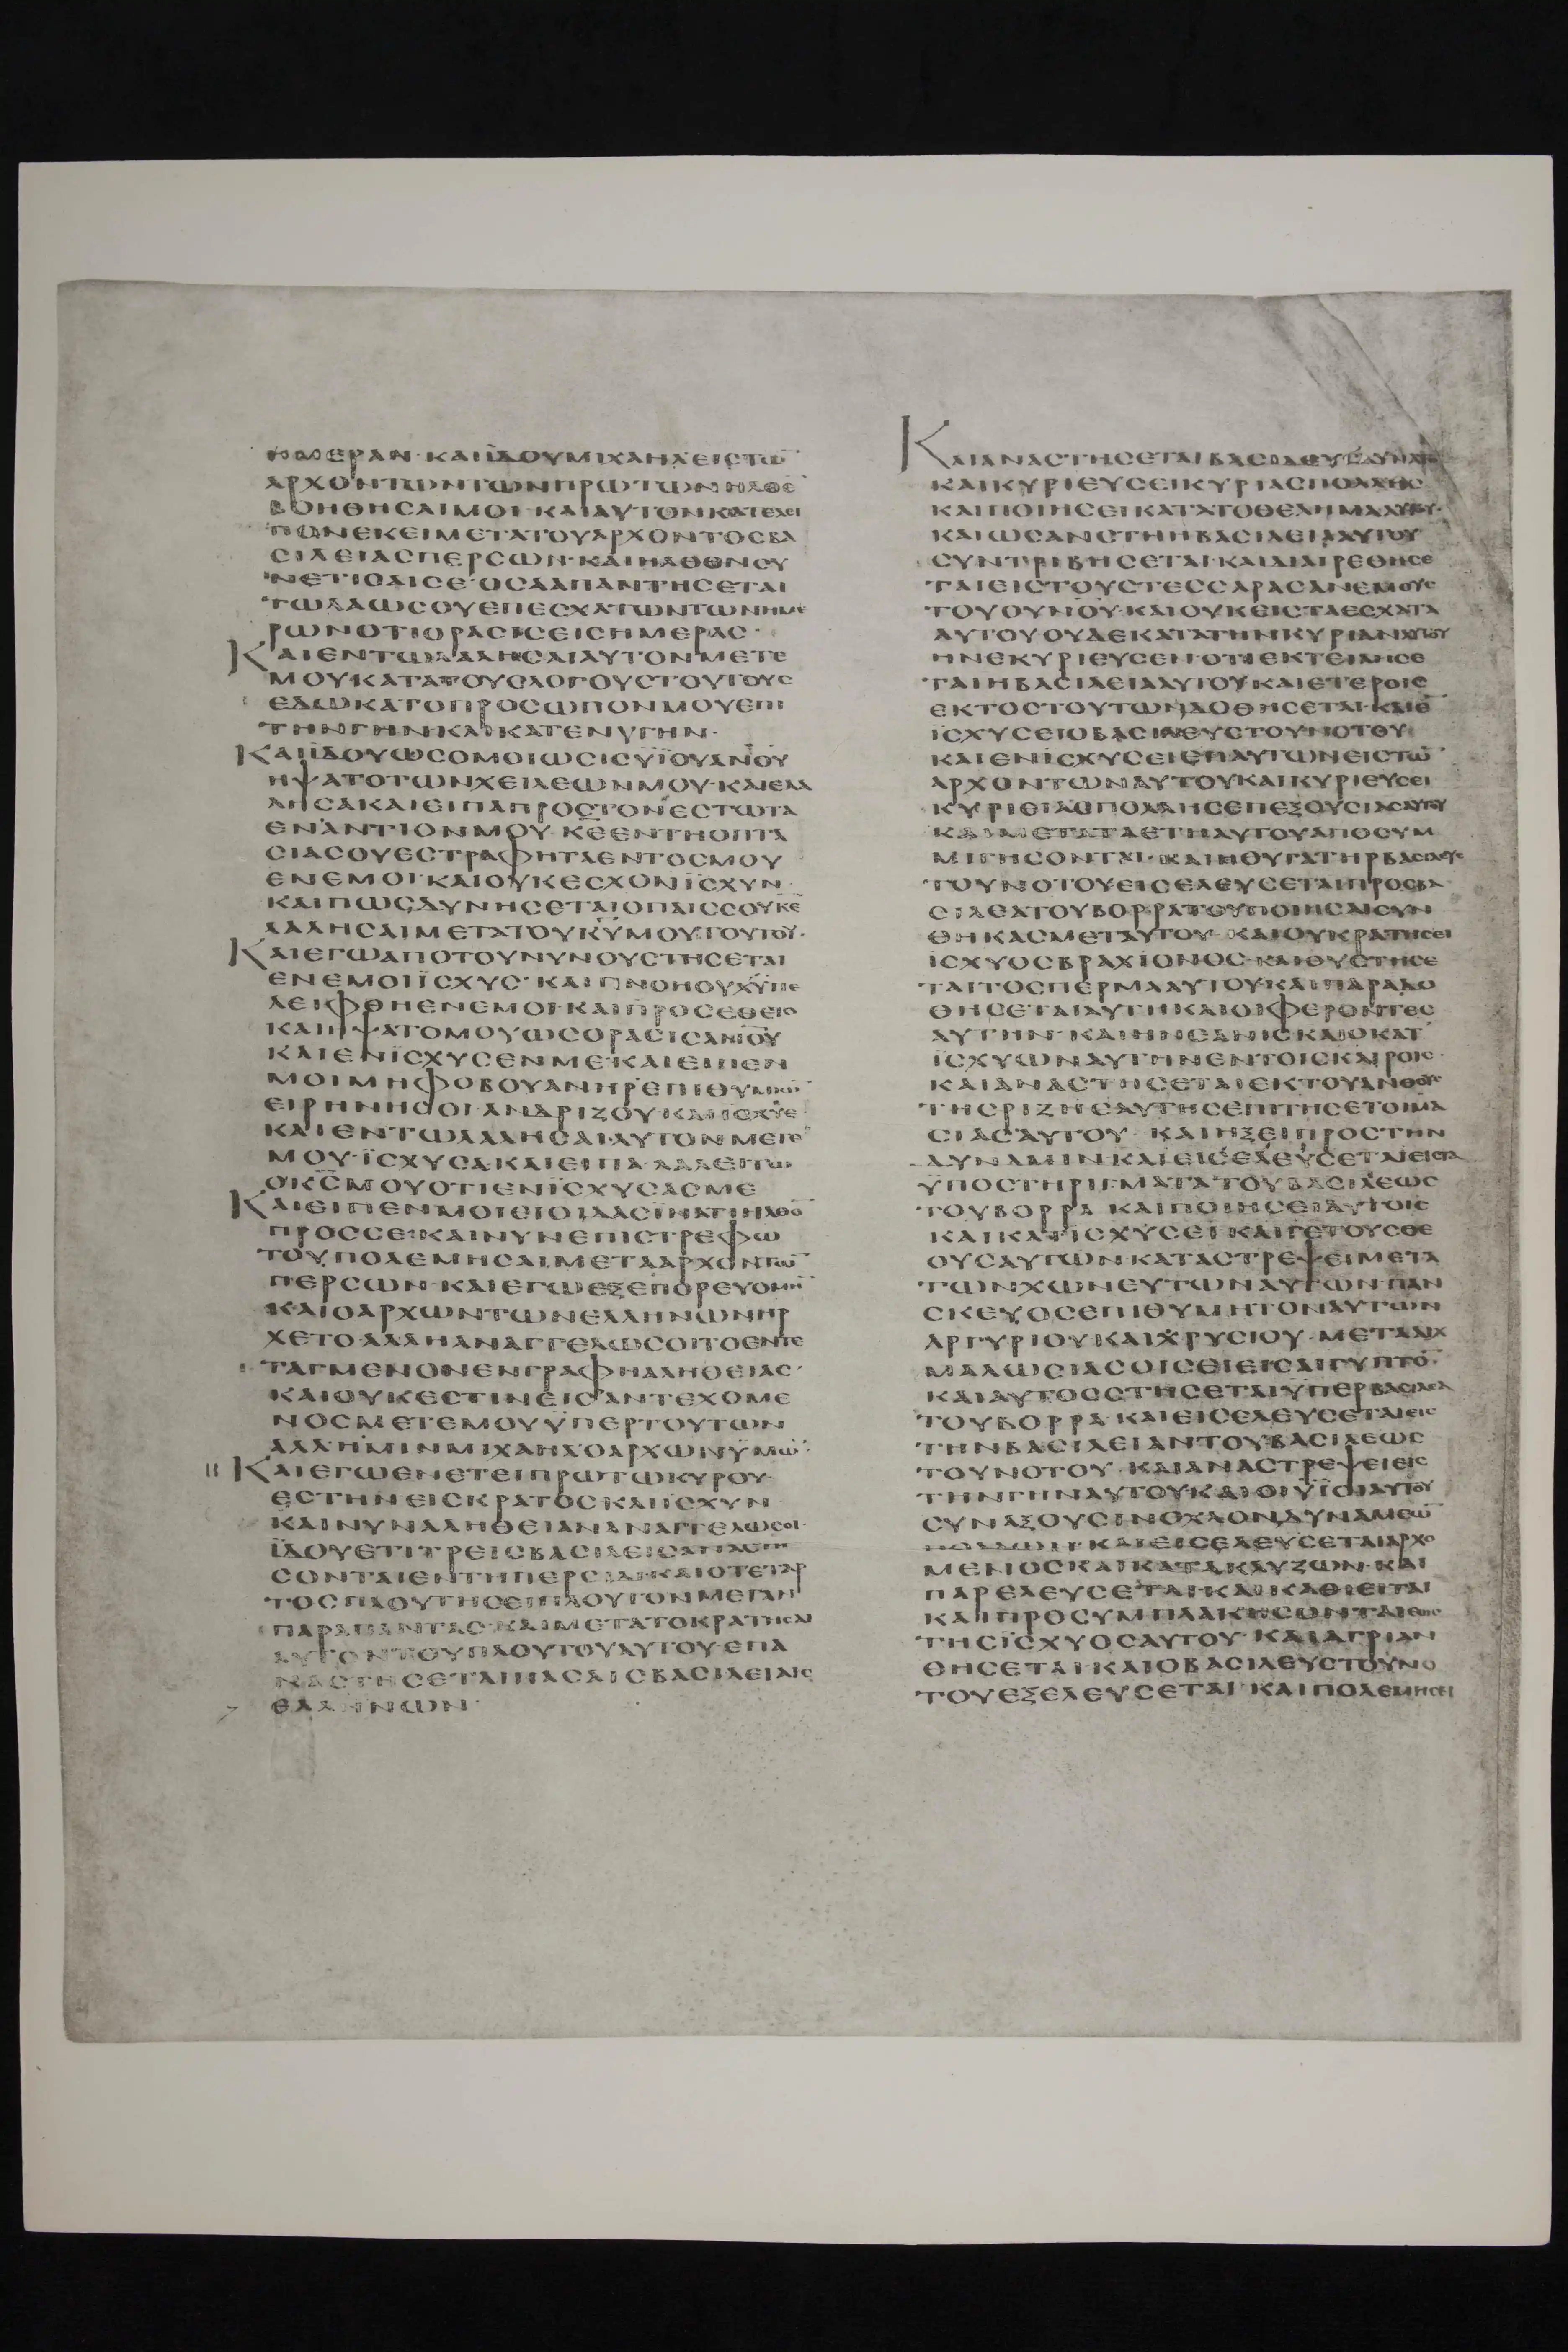 ΗΜΕΡΑΝ· ΚΑΙΪΔΟΥΜΙΧΑΗΛΕΙΣΤΩ̄
ΑΡΧΟΝΤΩΝΤΩΝΠΡΩΤΩΝΗΛΘΕ
ΒΟΗΘΗΣΑΙΜΟΙ· ΚΑΙΑΥΤΟΝΚΑΤΕΛΕΙ
ΠΟΝΕΚΕΙΜΕΤΑΤΟΥΑΡΧΟΝΤΟΣΒΑ
ΣΙΛΕΙΑΣΠΕΡΣΩΝ· ΚΑΙΗΛΘΟΝΣΥ
ΝΕΤΙΣΑΙΣΕ· ΟΣΑΑΠΑΝΤΗΣΕΤΑΙ
ΤΩΛΑΩΣΟΥΕΠΕΣΧΑΤΩΝΤΩΝΗΜΕ
ΡΩΝΟΤΙΟΡΑΣΙΣΕΙΣΗΜΕΡΑΣ·
ΚΑΙΕΝΤΩΛΑΛΗΣΑΙΑΥΤΟΝΜΕΤΕ
ΜΟΥΚΑΤΑΤΟΥΣΛΟΓΟΥΣΤΟΥΤΟΥΣ
ΕΔΩΚΑΤΟΠΡΟΣΩΠΟΝΜΟΥΕΠΙ
ΤΗΝΓΗΝΚΑΙΚΑΤΕΝΥΓΗΝ·
ΚΑΙΪΔΟΥΩΣΟΜΟΙΩΣΙΣΥΪΟΥΑΝΟΥ
ΗΨΑΤΟΤΩΝΧΕΙΛΕΩΝΜΟΥ· ΚΑΙΕΛΑ
ΛΗΣΑΚΑΙΕΙΠΑΠΡΟΣΤΟΝΕΣΤΩΤΑ
ΕΝΑΝΤΙΟΝΜΟΥ· ΚΕ̄ΕΝΤΗΟΠΤΑ
ΣΙΑΣΟΥΕΣΤΡΑΦΗΤΑΕΝΤΟΣΜΟΥ
ΕΝΕΜΟΙ· ΚΑΙΟΥΚΕΣΧΟΝΪΣΧΥΝ·
ΚΑΙΠΩΣΔΥΝΗΣΕΤΑΙΟΠΑΙΣΣΟΥΚΕ̄
ΛΑΛΗΣΑΙΜΕΤΑΤΟΥΚῩΜΟΥΤΟΥΤΟΥ·
ΚΑΙΕΓΩΑΠΟΤΟΥΝΥΝΟΥΣΤΗΣΕΤΑΙ
ΕΝΕΜΟΙΪΣΧΥΣ· ΚΑΙΠΝΟΗΟΥΧΫΠΕ
ΛΕΙΦΘΗΕΝΕΜΟΙ· ΚΑΙΠΡΟΣΕΘΕΤΟ
ΚΑΙΗΨΑΤΟΜΟΥΩΣΟΡΑΣΙΣΑΝΟΥ
ΚΑΙΕΝΪΣΧΥΣΕΝΜΕ· ΚΑΙΕΙΠΕΝ
ΜΟΙΜΗΦΟΒΟΥΑΝΗΡΕΠΙΘΥΜΙΩ̄
ΕΙΡΗΝΗΣΟΙ· ΑΝΔΡΙΖΟΥΚΑΙΪΣΧΥΕ
ΚΑΙΕΝΤΩΛΑΛΗΣΑΙ· ΑΥΤΟΝΜΕΤΕ
ΜΟΥ· ΪΣΧΥΣΑ· ΚΑΙΕΙΠΑ· ΛΑΛΕΙΤΩ
ΟΚΣ̄ΜΟΥΟΤΙΕΝΪΣΧΥΣΑΣΜΕ
ΚΑΙΕΙΠΕΝΜΟΙΕΙΟΙΔΑΣΪΝΑΤΙΗΛΘΟ̄
ΠΡΟΣΣΕ· ΚΑΙΝΥΝΕΠΙΣΤΡΕΦΩ
ΤΟΥΠΟΛΕΜΗΣΑΙΜΕΤΑΑΡΧΟΝΤΩ̄
ΠΕΡΣΩΝ· ΚΑΙΕΓΩΕΞΕΠΟΡΕΥΟΜΗ̄
ΚΑΙΟΑΡΧΩΝΤΩΝΕΛΛΗΝΩΝΗΡ
ΧΕΤΟ· ΑΛΛΗΑΝΑΓΓΕΛΩΣΟΙΤΟΕΝΤΕ
ΤΑΓΜΕΝΟΝΕΝΓΡΑΦΗΑΛΗΘΕΙΑΣ·
ΚΑΙΟΥΚΕΣΤΙΝΕΙΣΑΝΤΕΧΟΜΕ
ΝΟΣΜΕΤΕΜΟΥΫΠΕΡΤΟΥΤΩΝ
ΑΛΛΗΜΙΝΜΙΧΑΗΛΟΑΡΧΩΝΫΜΩ̄·
ΚΑΙΕΓΩΕΝΕΤΕΙΠΡΩΤΩΚΥΡΟΥ
ΕΣΤΗΝΕΙΣΚΡΑΤΟΣΚΑΙΪΣΧΥΝ
ΚΑΙΝΥΝΑΛΗΘΕΙΑΝΑΝΑΓΓΕΛΩΣΟΙ·
ΪΔΟΥΕΤΙΤΡΕΙΣΒΑΣΙΛΕΙΣΑΝΑΣΤΗ
ΣΟΝΤΑΙΕΝΤΗΠΕΡΣΙΔΙ· ΚΑΙΟΤΕΤΑΡ
ΤΟΣΠΛΟΥΤΗΣΕΙΠΛΟΥΤΟΝΜΕΓΑΝ
ΠΑΡΑΠΑΝΤΑΣ· ΚΑΙΜΕΤΑΤΟΚΡΑΤΗΣΑΙ
ΑΥΤΟΝΤΟΥΠΛΟΥΤΟΥΑΥΤΟΥ· ΕΠΑ
ΝΑΣΤΗΣΕΤΑΙΠΑΣΑΙΣΒΑΣΙΛΕΙΑΙΣ
ΕΛΛΗΝΩΝ·
ΚΑΙΑΝΑΣΤΗΣΕΤΑΙΒΑΣΙΛΕΥΣΔΥΝΑΤΟΣ
ΚΑΙΚΥΡΙΕΥΣΕΙΚΥΡΙΑΣΠΟΛΛΗΣ
ΚΑΙΠΟΙΗΣΕΙΚΑΤΑΤΟΘΕΛΗΜΑΑΥΤΟΥ·
ΚΑΙΩΣΑΝΣΤΗΗΒΑΣΙΛΕΙΑΑΥΤΟΥ
ΣΥΝΤΡΙΒΗΣΕΤΑΙ· ΚΑΙΔΙΑΙΡΕΘΗΣΕ
ΤΑΙΕΙΣΤΟΥΣΤΕΣΣΑΡΑΣΑΝΕΜΟΥΣ
ΤΟΥΟΥΝΟΥ· ΚΑΙΟΥΚΕΙΣΤΑΕΣΧΑΤΑ
ΑΥΤΟΥ· ΟΥΔΕΚΑΤΑΤΗΝΚΥΡΙΑΝΑΥΤΟΥ
ΗΝΕΚΥΡΙΕΥΣΕΝ· ΟΤΙΕΚΤΕΙΛΗΣΕ
ΤΑΙΗΒΑΣΙΛΕΙΑΑΥΤΟΥ· ΚΑΙΕΤΕΡΟΙΣ
ΕΚΤΟΣΤΟΥΤΩΝΔΟΘΗΣΕΤΑΙ· ΚΑΙΕ̄
ΪΣΧΥΣΕΙΟΒΑΣΙΛΕΥΣΤΟΥΝΟΤΟΥ·
ΚΑΙΕΝΙΣΧΥΣΕΙΕΠΑΥΤΩΝΕΙΣΤΩ̄
ΑΡΧΟΝΤΩΝΑΥΤΟΥΚΑΙΚΥΡΙΕΥΣΕΙ
ΚΥΡΙΕΙΑΝΠΟΛΛΗΣΕΠΕΞΟΥΣΙΑΣΑΥΤΟΥ
ΚΑΙΜΕΤΑΤΑΕΤΗΑΥΤΟΥΑΠΟΣΥΜ
ΜΙΓΗΣΟΝΤΑΙ· ΚΑΙΗΘΥΓΑΤΗΡΒΑΣΙΛΕΥΣ
ΤΟΥΝΟΤΟΥΕΙΣΕΛΕΥΣΕΤΑΙΠΡΟΣΒΑ
ΣΙΛΕΑΤΟΥΒΟΡΡΑΤΟΥΠΟΙΗΣΑΙΣΥΝ
ΘΗΚΑΣΜΕΤΑΥΤΟΥ· ΚΑΙΟΥΚΡΑΤΗΣΕΙ
ΪΣΧΥΟΣΒΡΑΧΙΟΝΟΣ· ΚΑΙΟΥΣΤΗΣΕ
ΤΑΙΤΟΣΠΕΡΜΑΑΥΤΟΥ· ΚΑΙΠΑΡΑΔΟ
ΘΗΣΕΤΑΙΑΥΤΗΚΑΙΟΙΦΕΡΟΝΤΕΣ
ΑΥΤΗΝ· ΚΑΙΗΝΕΑΝΙΣΚΑΙΟΚΑΤ
ΪΣΧΥΩΝΑΥΤΗΝΕΝΤΟΙΣΚΑΙΡΟΙΣ·
ΚΑΙΑΝΑΣΤΗΣΕΤΑΙΕΚΤΟΥΑΝΘΟΥΣ
ΤΗΣΡΙΖΗΣΑΥΤΗΣΕΠΙΤΗΣΕΤΟΙΜΑ
ΣΙΑΣΑΥΤΟΥ· ΚΑΙΗΞΕΙΠΡΟΣΤΗΝ
ΔΥΝΑΜΙΝΚΑΙΕΙΣΕΛΕΥΣΕΤΑΙΕΙΣΤΑ
ΥΠΟΣΤΗΡΙΓΜΑΤΑΤΟΥΒΑΣΙΛΕΩΣ
ΤΟΥΒΟΡΡΑ· ΚΑΙΠΟΙΗΣΕΙΑΥΤΟΙΣ
ΚΑΙΚΑΤΙΣΧΥΣΕΙ· ΚΑΙΓΕΤΟΥΣΘΕ
ΟΥΣΑΥΤΩΝ· ΚΑΤΑΣΤΡΕΨΕΙΜΕΤΑ
ΤΩΝΧΩΝΕΥΤΩΝΑΥΤΩΝ· ΠΑΝ
ΣΚΕΥΟΣΕΠΙΘΥΜΗΤΟΝΑΥΤΩΝ
ΑΡΓΥΡΙΟΥΚΑΙΧΡΥΣΙΟΥ· ΜΕΤΑΙΧ
ΜΑΛΩΣΙΑΣΟΙΣΘΙΕΙΣΑΙΓΥΠΤΟ̄·
ΚΑΙΑΥΤΟΣΣΤΗΣΕΤΑΙΫΠΕΡΒΑΣΙΛΕΑ
ΤΟΥΒΟΡΡΑ· ΚΑΙΕΙΣΕΛΕΥΣΕΤΑΙΕΙΣ
ΤΗΝΒΑΣΙΛΕΙΑΝΤΟΥΒΑΣΙΛΕΩΣ
ΤΟΥΝΟΤΟΥ· ΚΑΙΑΝΑΣΤΡΕΨΕΙΕΙΣ
ΤΗΝΓΗΝΑΥΤΟΥΚΑΙΟΙΥΪΟΙΑΥΤΟΥ
ΣΥΝΑΞΟΥΣΙΝΟΧΛΟΝΔΥΝΑΜΕΩ̄
ΠΟΛΛΩΝ· ΚΑΙΕΙΣΕΛΕΥΣΕΤΑΙΑΡΧΟ
ΜΕΝΟΣΚΑΙΚΑΤΑΚΛΥΖΩΝ· ΚΑΙ
ΠΑΡΕΛΕΥΣΕΤΑΙ· ΚΑΙΚΑΘΙΕΙΤΑΙ
ΚΑΙΠΡΟΣΥΜΠΛΑΚΗΣΟΝΤΑΙΕΩΣ
ΤΗΣΪΣΧΥΟΣΑΥΤΟΥ· ΚΑΙΑΓΡΙΑΝ
ΘΗΣΕΤΑΙ· ΚΑΙΟΒΑΣΙΛΕΥΣΤΟΥΝΟ
ΤΟΥΕΞΕΛΕΥΣΕΤΑΙ· ΚΑΙΠΟΛΕΜΗΣΕΙ